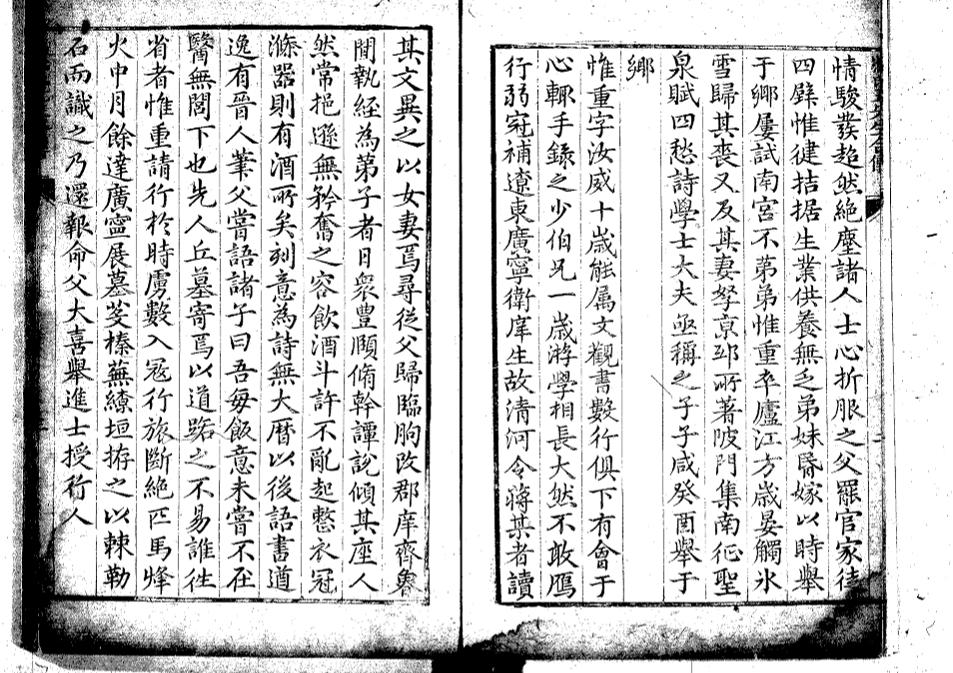 情駿發超然絶塵諸人士心折服之父罷官家徒
四壁惟健拮据生業供養無乏弟妹昏嫁以時舉
于鄉屢試南宮不第弟惟重卒廬江方歲晏觸氷
雪歸其喪又及其妻孥京邸所著陂門集南征聖
泉賦四愁詩學士大夫亟稱之子子咸癸酉舉于
鄉
惟重字汝威十歲能属文觀書數行俱下有會于
心輒手錄之少伯兄一歲游學相長大然不敢鴈
行弱冠補遼東廣寧衛庠生故清河令蔣某者讀
其文異之以女妻焉尋從父歸臨朐改郡庠齊魯
閒執經為弟子者日衆豊頤脩幹譚說傾其座人
然常挹遜無矜奮之容飲酒斗許不亂起整衣冠
滌器則有酒所矣刻意為詩無大曆以後語書道
逸有晉人筆父嘗語諸子曰吾每飯意未嘗不在
醫無閭下也先人丘墓寄焉以道路之不易誰徃
省者惟重請行於時虜數入冦行旅斷絶匹馬烽
火中月餘達廣寧展墓芟榛蕪繚垣拵之以棘勒
石而識之乃還報命父大喜舉進士授行人